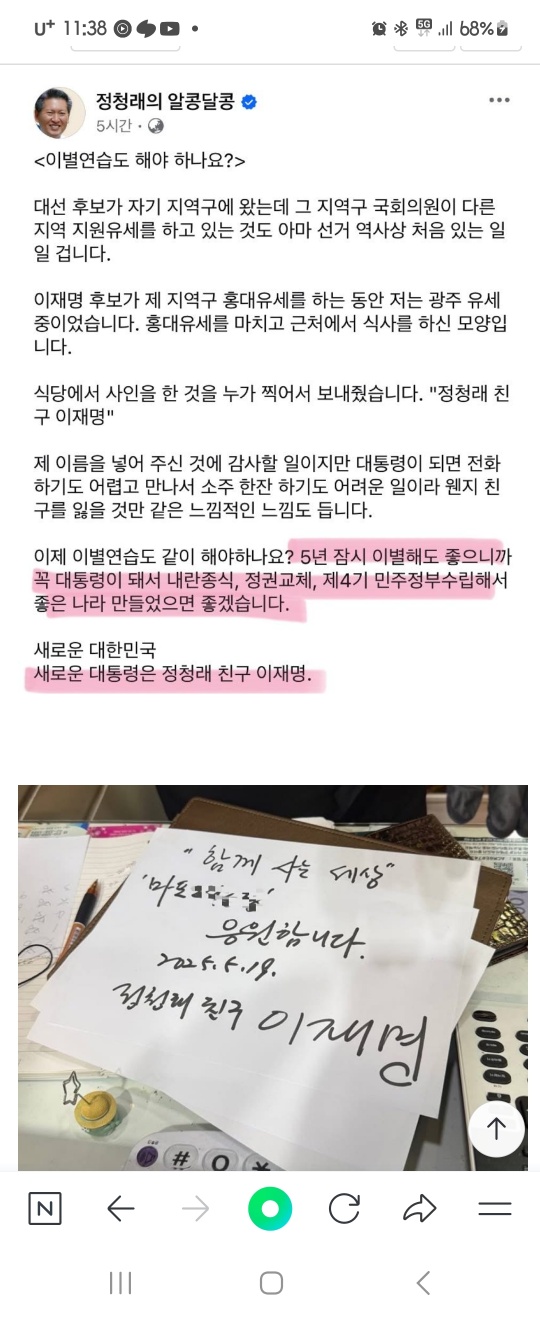 U+ 11:38
5G 68%
정청래의 알콩달콩
5시간 ·
<이별연습도 해야 하나요?>
대선 후보가 자기 지역구에 왔는데 그 지역구 국회의원이 다른
지역 지원유세를 하고 있는 것도 아마 선거 역사상 처음 있는 일
일 겁니다.
이재명 후보가 제 지역구 홍대유세를 하는 동안 저는 광주 유세
중이었습니다. 홍대유세를 마치고 근처에서 식사를 하신 모양입
니다.
식당에서 사인을 한 것을 누가 찍어서 보내줬습니다. "정청래 친
구 이재명"
제 이름을 넣어 주신 것에 감사할 일이지만 대통령이 되면 전화
하기도 어렵고 만나서 소주 한잔 하기도 어려운 일이라 웬지 친
구를 잃을 것만 같은 느낌적인 느낌도 듭니다.
이제 이별연습도 같이 해야하나요? 5년 잠시 이별해도 좋으니까
꼭 대통령이 돼서 내란종식, 정권교체, 제4기 민주정부수립해서
좋은 나라 만들었으면 좋겠습니다.
새로운 대한민국
새로운 대통령은 정청래 친구 이재명.
"함께 사는 세상"
'마포
응원합니다.
2025.5.19.
정청래 친구 이재명
# 0 *
N